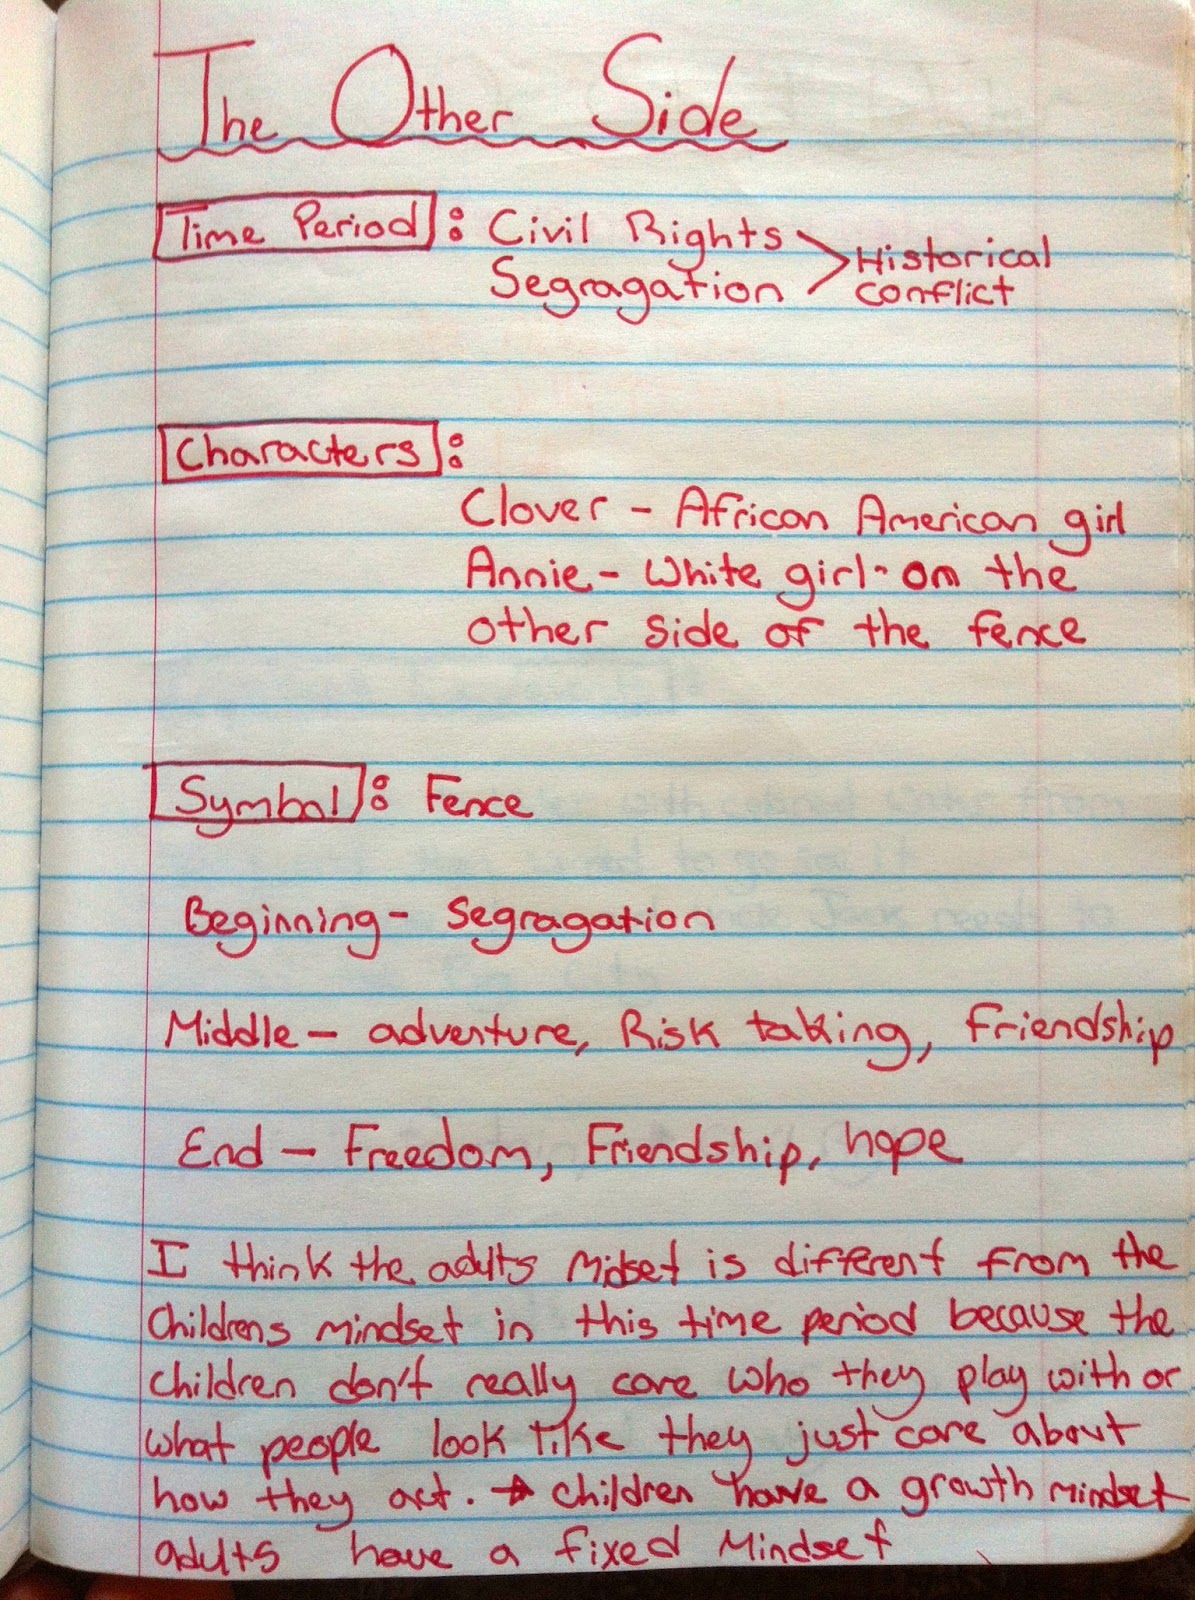 The Other Side
Time Period: Civil Rights
Segragation
Historical
conflict
Characters:
Clover - African American girl
Annie - White girl - on the
other side of the fence
Symbol: Fence
Beginning - Segragation
Middle - adventure, Risk taking, Friendship
End - Freedom, Friendship, hope
I think the adults midset is different from the
Childrens mindset in this time period because the
children don't really care who they play with or
what people look like they just care about
how they act. → children have a growth mindset
adults have a fixed Mindset